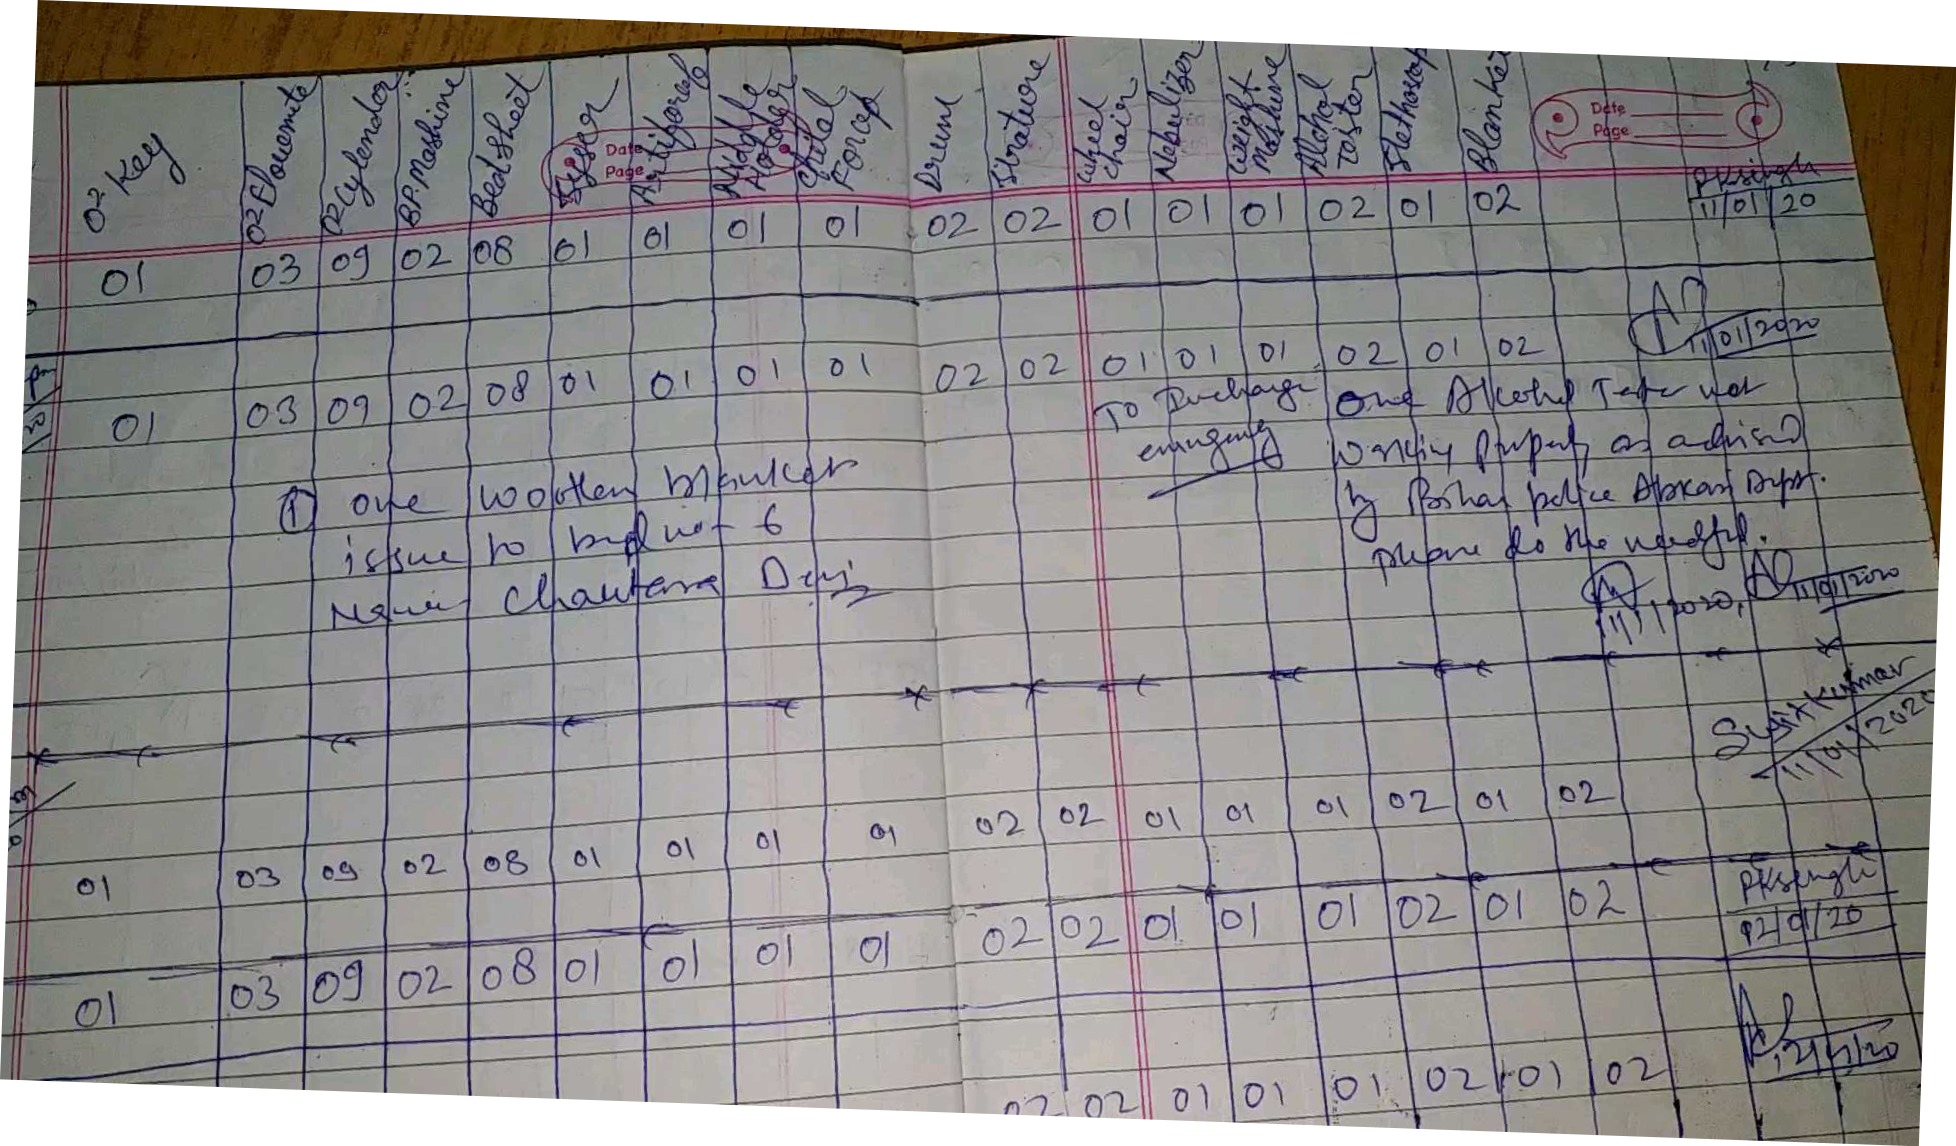 O2 Key O2 Flowmeter O2 Cylendor B.P. Mashine Bed Sheet Artiforcep Niddle Holder Chital Forcep Drum Wheel chair Nebulizer Weight Mashine Alchol Taster Stethoscop Blanket
Date
Page
Date
Page
01 03 09 02 08 01 01 01 01 02 02 01 01 01 02 01 02 PKsingh
11/01/20
01 03 09 02 08 01 01 01 01 02 02 01 01 01 02 01 02 11/01/2020
① one woollen blanket
issue to bed no - 6
Name Devi
TO
emergency
one Alcohol Tester not
working properly as advised
by Bihar police Abkari Dept.
please do the needful.
11/1/2020, 11/01/2020
Sujit Kumar
11/01/2020
01 03 09 02 08 01 01 01 01 02 02 01 01 01 02 01 02
01 03 09 02 08 01 01 01 01 02 02 01 01 01 02 01 02 PKsingh
12/01/20
02 02 01 01 01 02 01 02